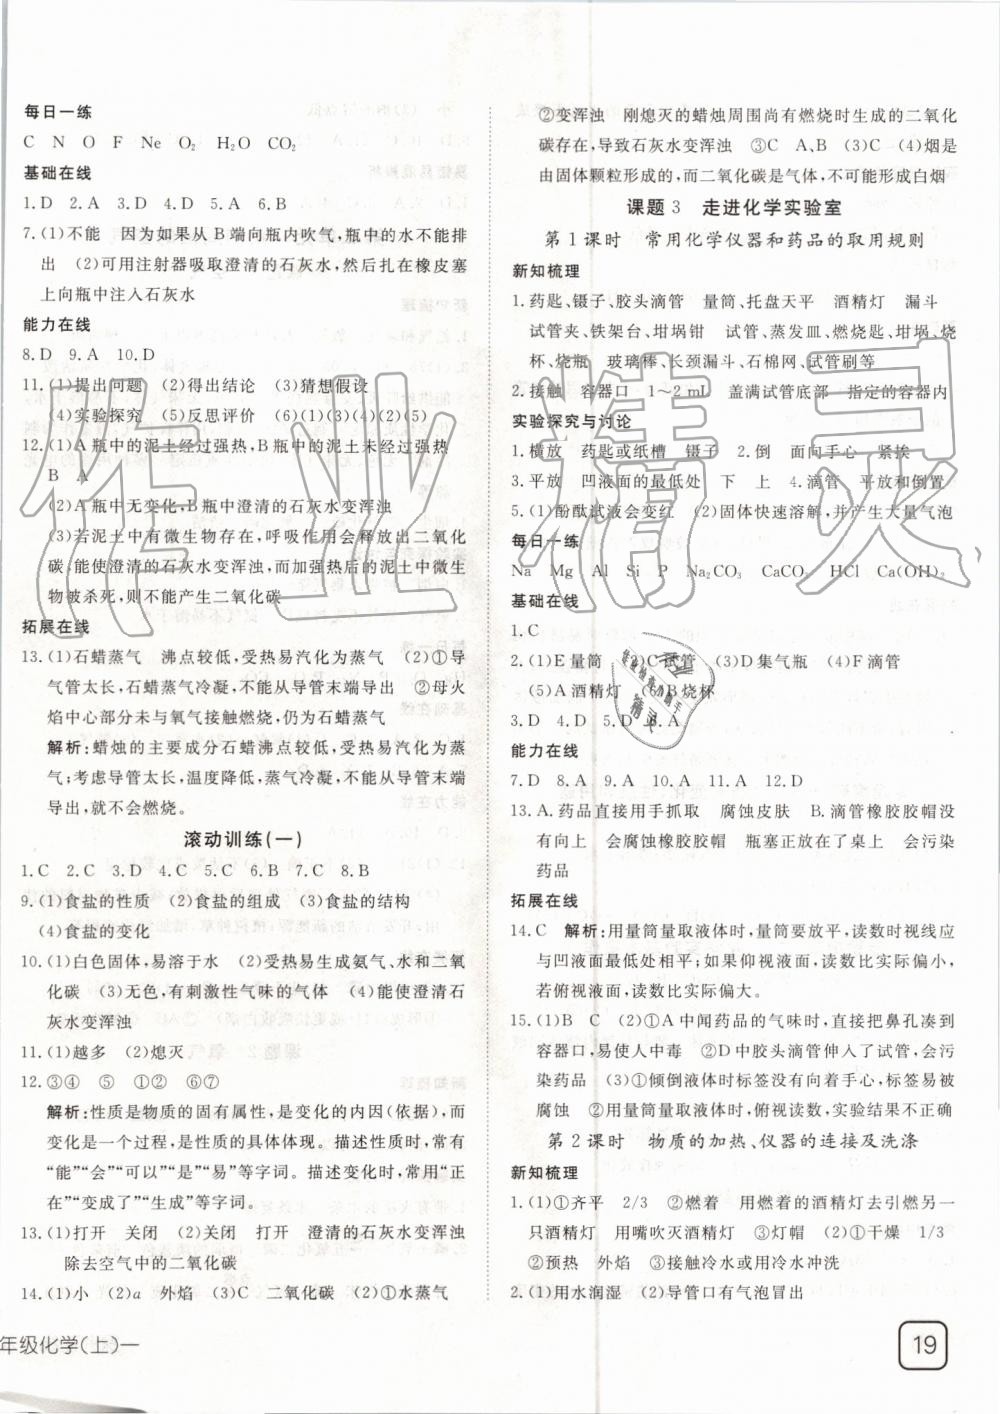 每日一练
C N O F Ne O₂ H₂O CO₂
基础在线
1.D 2.A 3.D 4.D 5.A 6.B
7.(1)不能 因为如果从B端向瓶内吹气,瓶中的水不能排
出 (2)可用注射器吸取澄清的石灰水,然后扎在橡皮塞
上向瓶中注入石灰水
能力在线
8.D 9.A 10.D
11.(1)提出问题 (2)得出结论 (3)猜想假设
(4)实验探究 (5)反思评价 (6)(1)(3)(4)(2)(5)
12.(1)A瓶中的泥土经过强热,B瓶中的泥土未经过强热
B A
(2)A瓶中无变化,B瓶中澄清的石灰水变浑浊
(3)若泥土中有微生物存在,呼吸作用会呼出二氧化
碳,能使澄清的石灰水变浑浊,而加强热后的泥土中微生
物被杀死,则不能产生二氧化碳
拓展在线
13.(1)石蜡蒸气 沸点较低,受热易汽化为蒸气 (2)①导
气管太长,石蜡蒸气冷凝,不能从导管末端导出 ②母火
焰中心部分未与氧气接触燃烧,仍为石蜡蒸气
解析:蜡烛的主要成分石蜡沸点较低,受热易汽化为蒸
气;考虑导管太长,温度降低,蒸气冷凝,不能从导管末端
导出,就不会燃烧。
滚动训练(一)
1.C 2.C 3.D 4.C 5.D 6.B 7.C 8.B
9.(1)食盐的性质 (2)食盐的组成 (3)食盐的结构
(4)食盐的变化
10.(1)白色固体,易溶于水 (2)受热易生成氨气、水和二氧
化碳 (3)无色,有刺激性气味的气体 (4)能使澄清石
灰水变浑浊
11.(1)越多 (2)熄灭
12.③④ ⑤ ①② ⑥⑦
解析:性质是物质的固有属性,是变化的内因(依据),而
变化是一个过程,是性质的具体体现。描述性质时,常有
“能”“会”“可以”“是”“易”等字词。描述变化时,常用“正
在”“变成了”“生成”等字词。
13.(1)打开 关闭 (2)关闭 打开 澄清的石灰水变浑浊
除去空气中的二氧化碳
14.(1)小 (2)a 外焰 (3)C 二氧化碳 (2)①水蒸气
年级化学(上)一
②变浑浊 刚熄灭的蜡烛周围尚有燃烧时生成的二氧化
碳存在,导致石灰水变浑浊 ③C A、B (3)C (4)烟是
由固体颗粒形成的,而二氧化碳是气体,不可能形成白烟
课题3 走进化学实验室
第1课时 常用化学仪器和药品的取用规则
新知梳理
1.药匙、镊子、胶头滴管 量筒、托盘天平 酒精灯 漏斗
试管夹、铁架台、坩埚钳 试管、蒸发皿、燃烧匙、坩埚、烧
杯、烧瓶 玻璃棒、长颈漏斗、石棉网、试管刷等
2.接触 容器口 1～2 mL 盖满试管底部 指定的容器内
实验探究与讨论
1.横放 药匙或纸槽 镊子 2.倒 面向手心 紧挨
3.平放 凹液面的最低处 下 上 4.滴管 平放和倒置
5.(1)酚酞试液会变红 (2)固体快速溶解,并产生大量气泡
每日一练
Na Mg Al Si P Na₂CO₃ CaCO₃ HCl Ca(OH)₂
基础在线
1.C
2.(1)E量筒 (2)C试管 (3)D集气瓶 (4)F滴管
(5)A酒精灯 (6)B烧杯
3.D 4.D 5.D 6.A
能力在线
7.D 8.A 9.A 10.A 11.A 12.D
13.A.药品直接用手抓取 腐蚀皮肤 B.滴管橡胶胶帽没
有向上 会腐蚀橡胶胶帽 瓶塞正放在了桌上 会污染
药品
拓展在线
14.C 解析:用量筒量取液体时,量筒要放平,读数时视线应
与凹液面最低处相平;如果仰视液面,读数比实际偏小,
若俯视液面,读数比实际偏大。
15.(1)B C (2)①A中闻药品的气味时,直接把鼻孔凑到
容器口,易使人中毒 ②D中胶头滴管伸入了试管,会污
染药品 (3)①倾倒液体时标签没有向着手心,标签易被
腐蚀 ②用量筒量取液体时,俯视读数,实验结果不正确
第2课时 物质的加热、仪器的连接及洗涤
新知梳理
1.(1)①齐平 2/3 ②燃着 用燃着的酒精灯去引燃另一
只酒精灯 用嘴吹灭酒精灯 ③灯帽 (2)①干燥 1/3
②预热 外焰 ③接触冷水或用冷水冲洗
2.(1)用水润湿 (2)导管口有气泡冒出
19
作业精灵